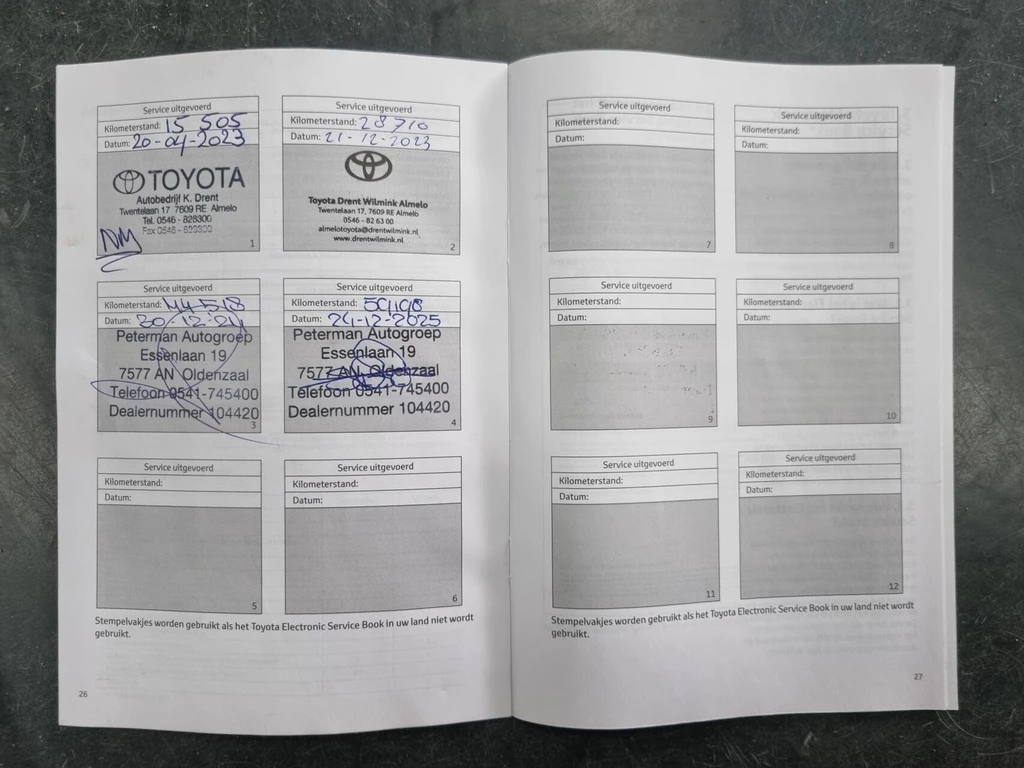 Service uitgevoerd
Kilometerstand: 15 505
Datum: 20-04-2023
TOYOTA
Autobedrijf K. Drent
Twentelaan 17 7609 RE Almelo
Tel. 0546 - 828300
Fax 0546 -
NM
1
Service uitgevoerd
Kilometerstand: 28710
Datum: 21-12-2023
Toyota Drent Wilmink Almelo
Twentelaan 17, 7609 RE Almelo
0546 - 82 63 00
almelotoyota@drentwilmink.nl
www.drentwilmink.nl
2
Service uitgevoerd
Kilometerstand: 44518
Datum: 30-12-24
Peterman Autogroep
Essenlaan 19
7577 AN Oldenzaal
Telefoon 0541-745400
Dealernummer 104420
3
Service uitgevoerd
Kilometerstand:
Datum: 24-12-2025
Peterman Autogroep
Essenlaan 19
7577 AN Oldenzaal
Telefoon 0541-745400
Dealernummer 104420
4
Service uitgevoerd
Kilometerstand:
Datum:
5
Service uitgevoerd
Kilometerstand:
Datum:
6
Stempelvakjes worden gebruikt als het Toyota Electronic Service Book in uw land niet wordt
gebruikt.
26
Service uitgevoerd
Kilometerstand:
Datum:
7
Service uitgevoerd
Kilometerstand:
Datum:
8
Service uitgevoerd
Kilometerstand:
Datum:
9
Service uitgevoerd
Kilometerstand:
Datum:
10
Service uitgevoerd
Kilometerstand:
Datum:
11
Service uitgevoerd
Kilometerstand:
Datum:
12
Stempelvakjes worden gebruikt als het Toyota Electronic Service Book in uw land niet wordt
gebruikt.
27